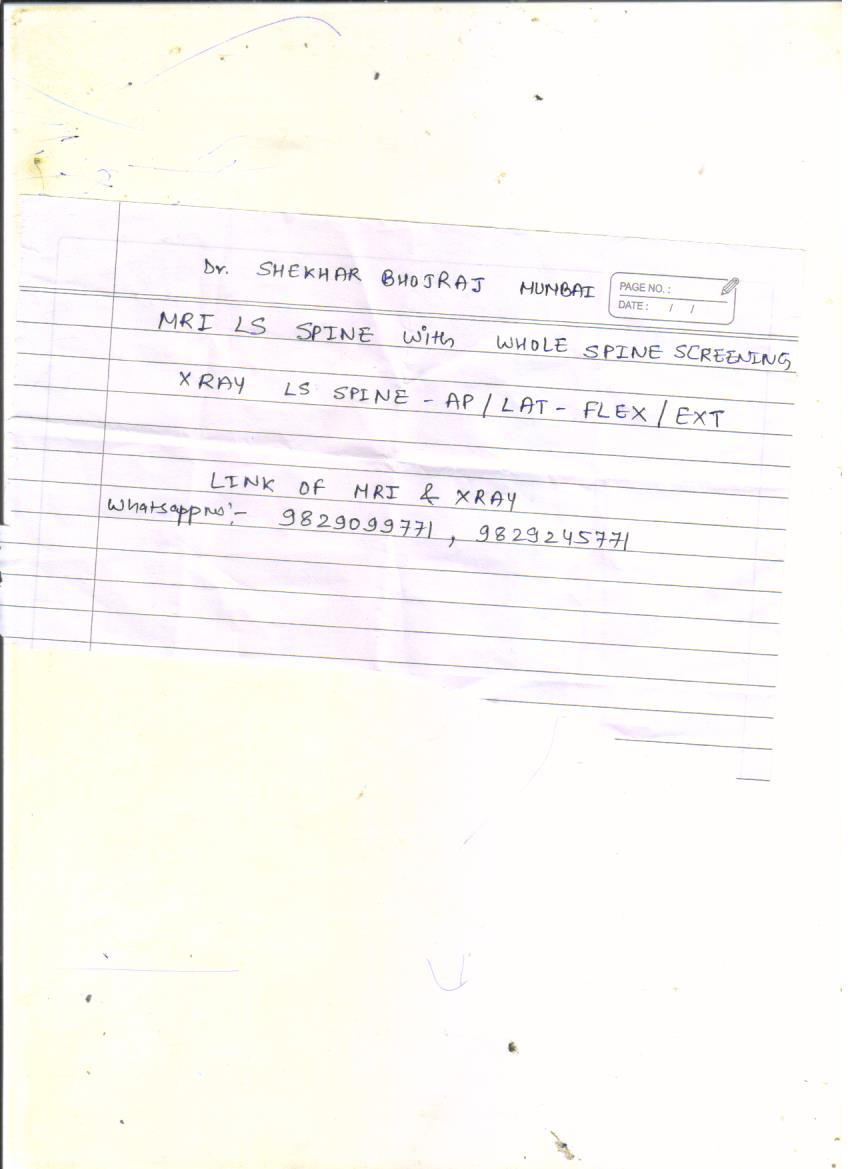 Dr. SHEKHAR BHOJRAJ MUMBAI
PAGE NO.:
DATE: / /
MRI LS SPINE with WHOLE SPINE SCREENING
XRAY LS SPINE - AP / LAT - FLEX / EXT
LINK OF MRI & XRAY
Whatsapp no:- 9829099771, 9829245771